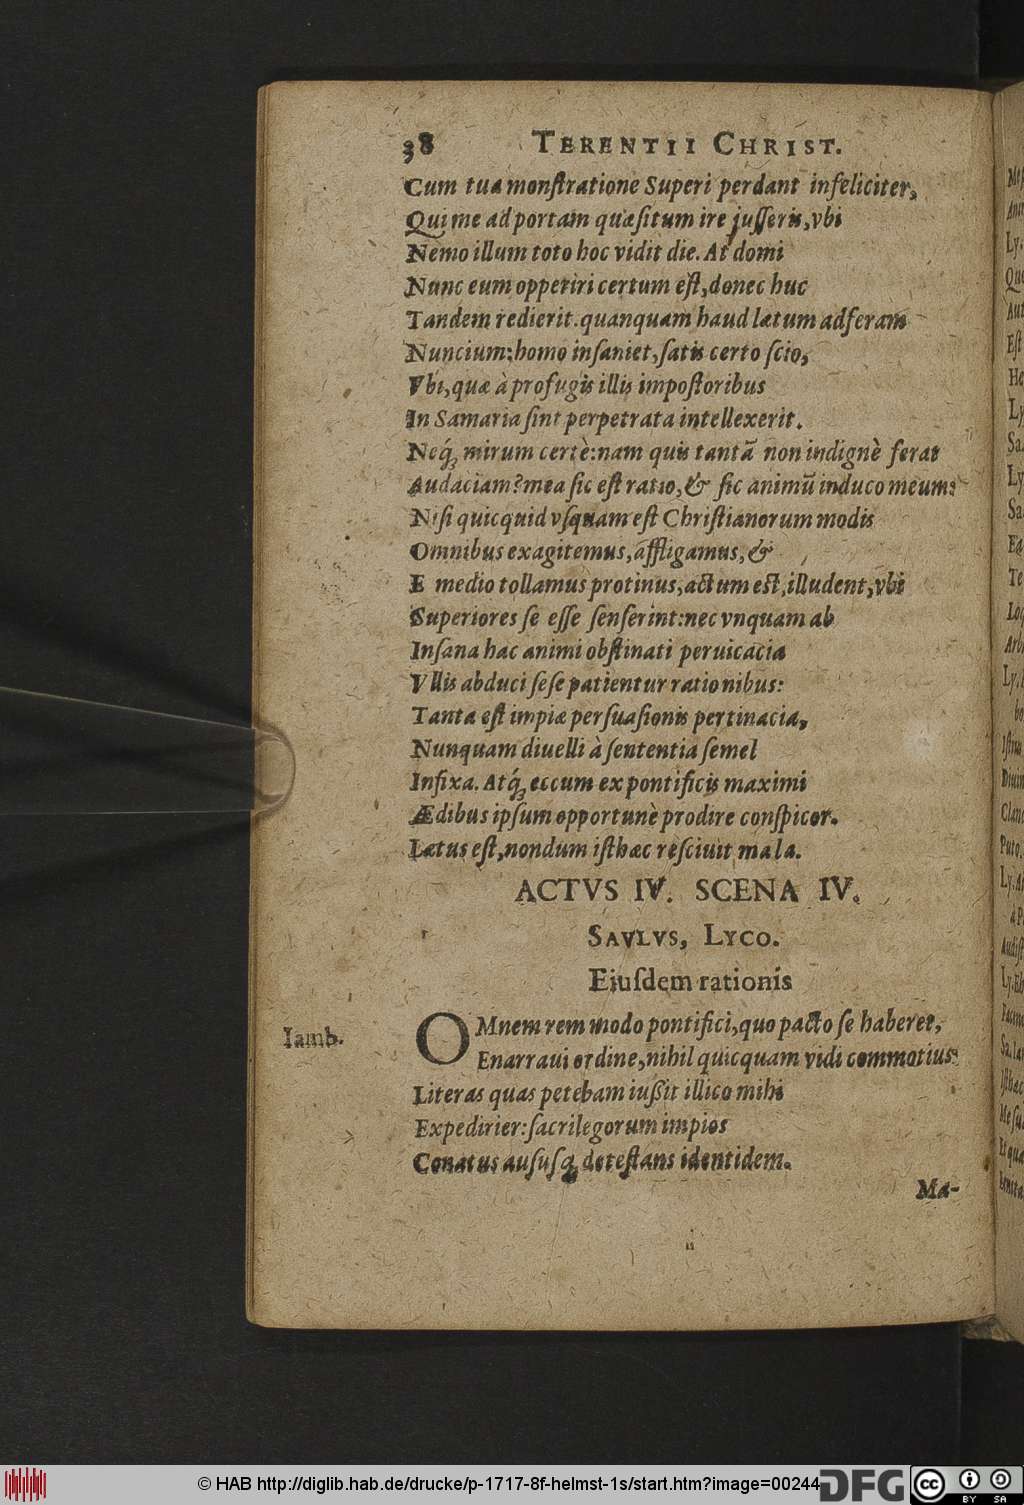 38 TERENTII CHRIST.
Cum tua monſtratione Superi perdant infeliciter,
Qui me ad portam quæſitum ire juſſeris, vbi
Nemo illum toto hoc vidit die. At domi
Nunc eum opperiri certum eſt, donec huc
Tandem redierit. quanquam haud lætum adferam
Nuncium: homo inſaniet, ſatis certo ſcio,
Vbi, quæ à profugis illis impoſtoribus
In Samaria ſint perpetrata intellexerit.
Neq́ꝫ mirum certè: nam quis tantã non indignè ferat
Audaciam? mea ſic eſt ratio, & ſic animũ induco meum:
Niſi quicquid vſquam eſt Chriſtianorum modis
Omnibus exagitemus, affligamus, &
E medio tollamus protinus, actum eſt, illudent, vbi
Superiores ſe eſſe ſenſerint: nec vnquam ab
Inſana hac animi obſtinati peruicacia
Vllis abduci ſeſe patientur rationibus:
Tanta eſt impiæ perſuaſionis pertinacia,
Nunquam diuelli à ſententia ſemel
Infixa. Atq́ꝫ eccum ex pontificis maximi
Ædibus ipſum opportunè prodire conſpicor.
Lætus eſt, nondum iſthæc reſciuit mala.
ACTVS IV. SCENA IV.
SAVLVS, LYCO.
Eiuſdem rationis
Iamb.
OMnem rem modo pontifici, quo pacto ſe haberet,
Enarraui ordine, nihil quicquam vidi commotius:
Literas quas petebam iußit illico mihi
Expedirier: ſacrilegorum impios
Conatus auſuſqꝫ deteſtans identidem.
Ma-
© HAB http://diglib.hab.de/drucke/p-1717-8f-helmst-1s/start.htm?image=00244
DFG
cc BY SA